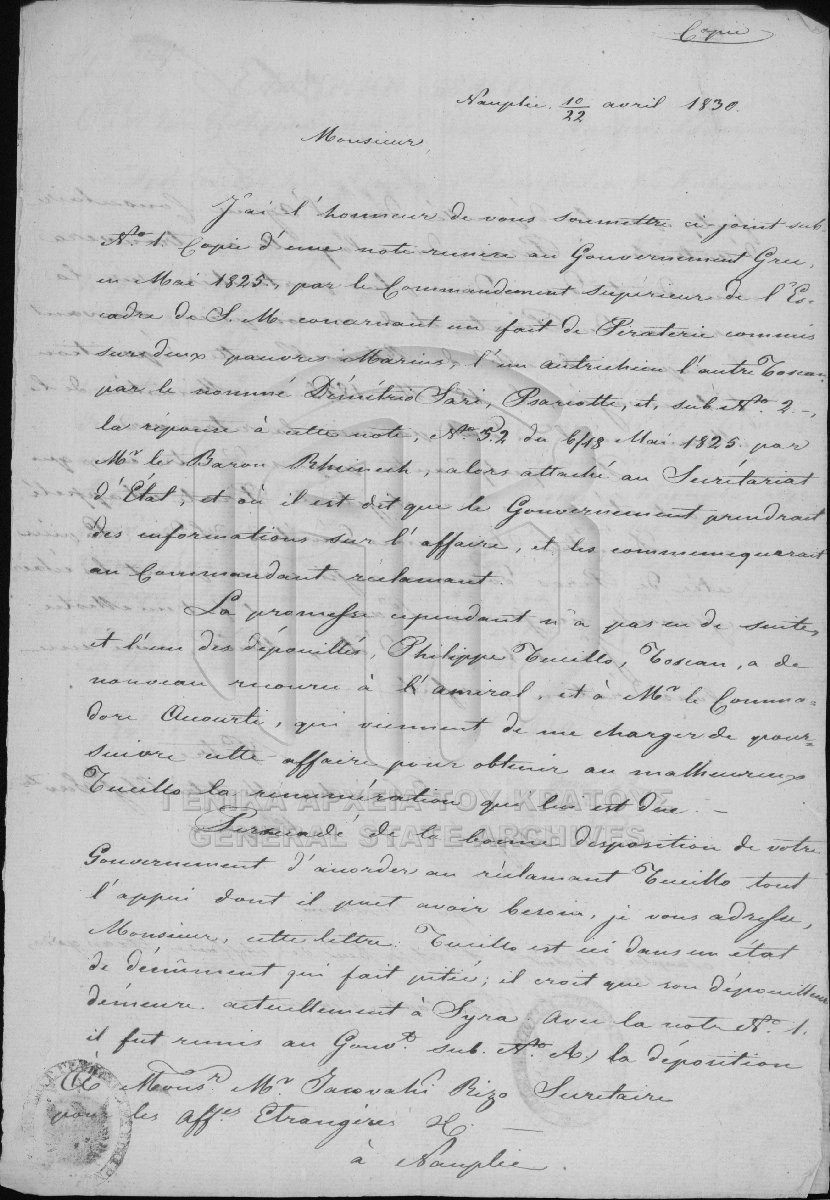 Copie
Nauplie 10/22 avril 1830.
Monsieur,
J'ai l'honneur de vous soumettre ci-joint sub.
No 1. Copie d'une note remise au Gouvernement Grec,
en Mai 1825, par le Commandement supérieur de l'Es-
cadre de S. M. concernant un fait de Piraterie commis
sur deux pauvres Marins, l'un autrichien l'autre Toscan,
par le nommé Démétrio Sari, Psariotte, et, sub No. 2 -,
la réponse à cette note, No 52 du 6/18 Mai 1825 par
Mr le Baron, alors attaché au Secrétariat
d'Etat, et où il est dit que le Gouvernement prendrait
des informations sur l'affaire, et les communiquerait
au Commandant réclamant.
La promesse cependant n'a pas eu de suites
et l'un des dépouillés, Philippe Tucillo, Toscan, a de
nouveau recouru à l'amiral, et à Mr le Commo-
dore, qui viennent de me charger de pour-
suivre cette affaire pour obtenir au malheureux
Tucillo la rémunération qui lui est due. -
Persuadé de la bonne disposition de votre
Gouvernement d'accorder au réclamant Tucillo tout
l'appui dont il peut avoir besoin, je vous adresse,
Monsieur, cette lettre. Tucillo est ici dans un état
de dénûment qui fait pitié; il croit que son dépouilleur
démeure actuellement à Syra Avec la note No 1.
il fut remis au Gouvt sub. No A, la déposition
À Monsr Mr Jacovaki Rizo Secretaire
pour les Affes Etrangères &.
à Nauplie.
ΓΕΝΙΚΑ ΑΡΧΕΙΑ ΤΟΥ ΚΡΑΤΟΥΣ
GENERAL STATE ARCHIVES